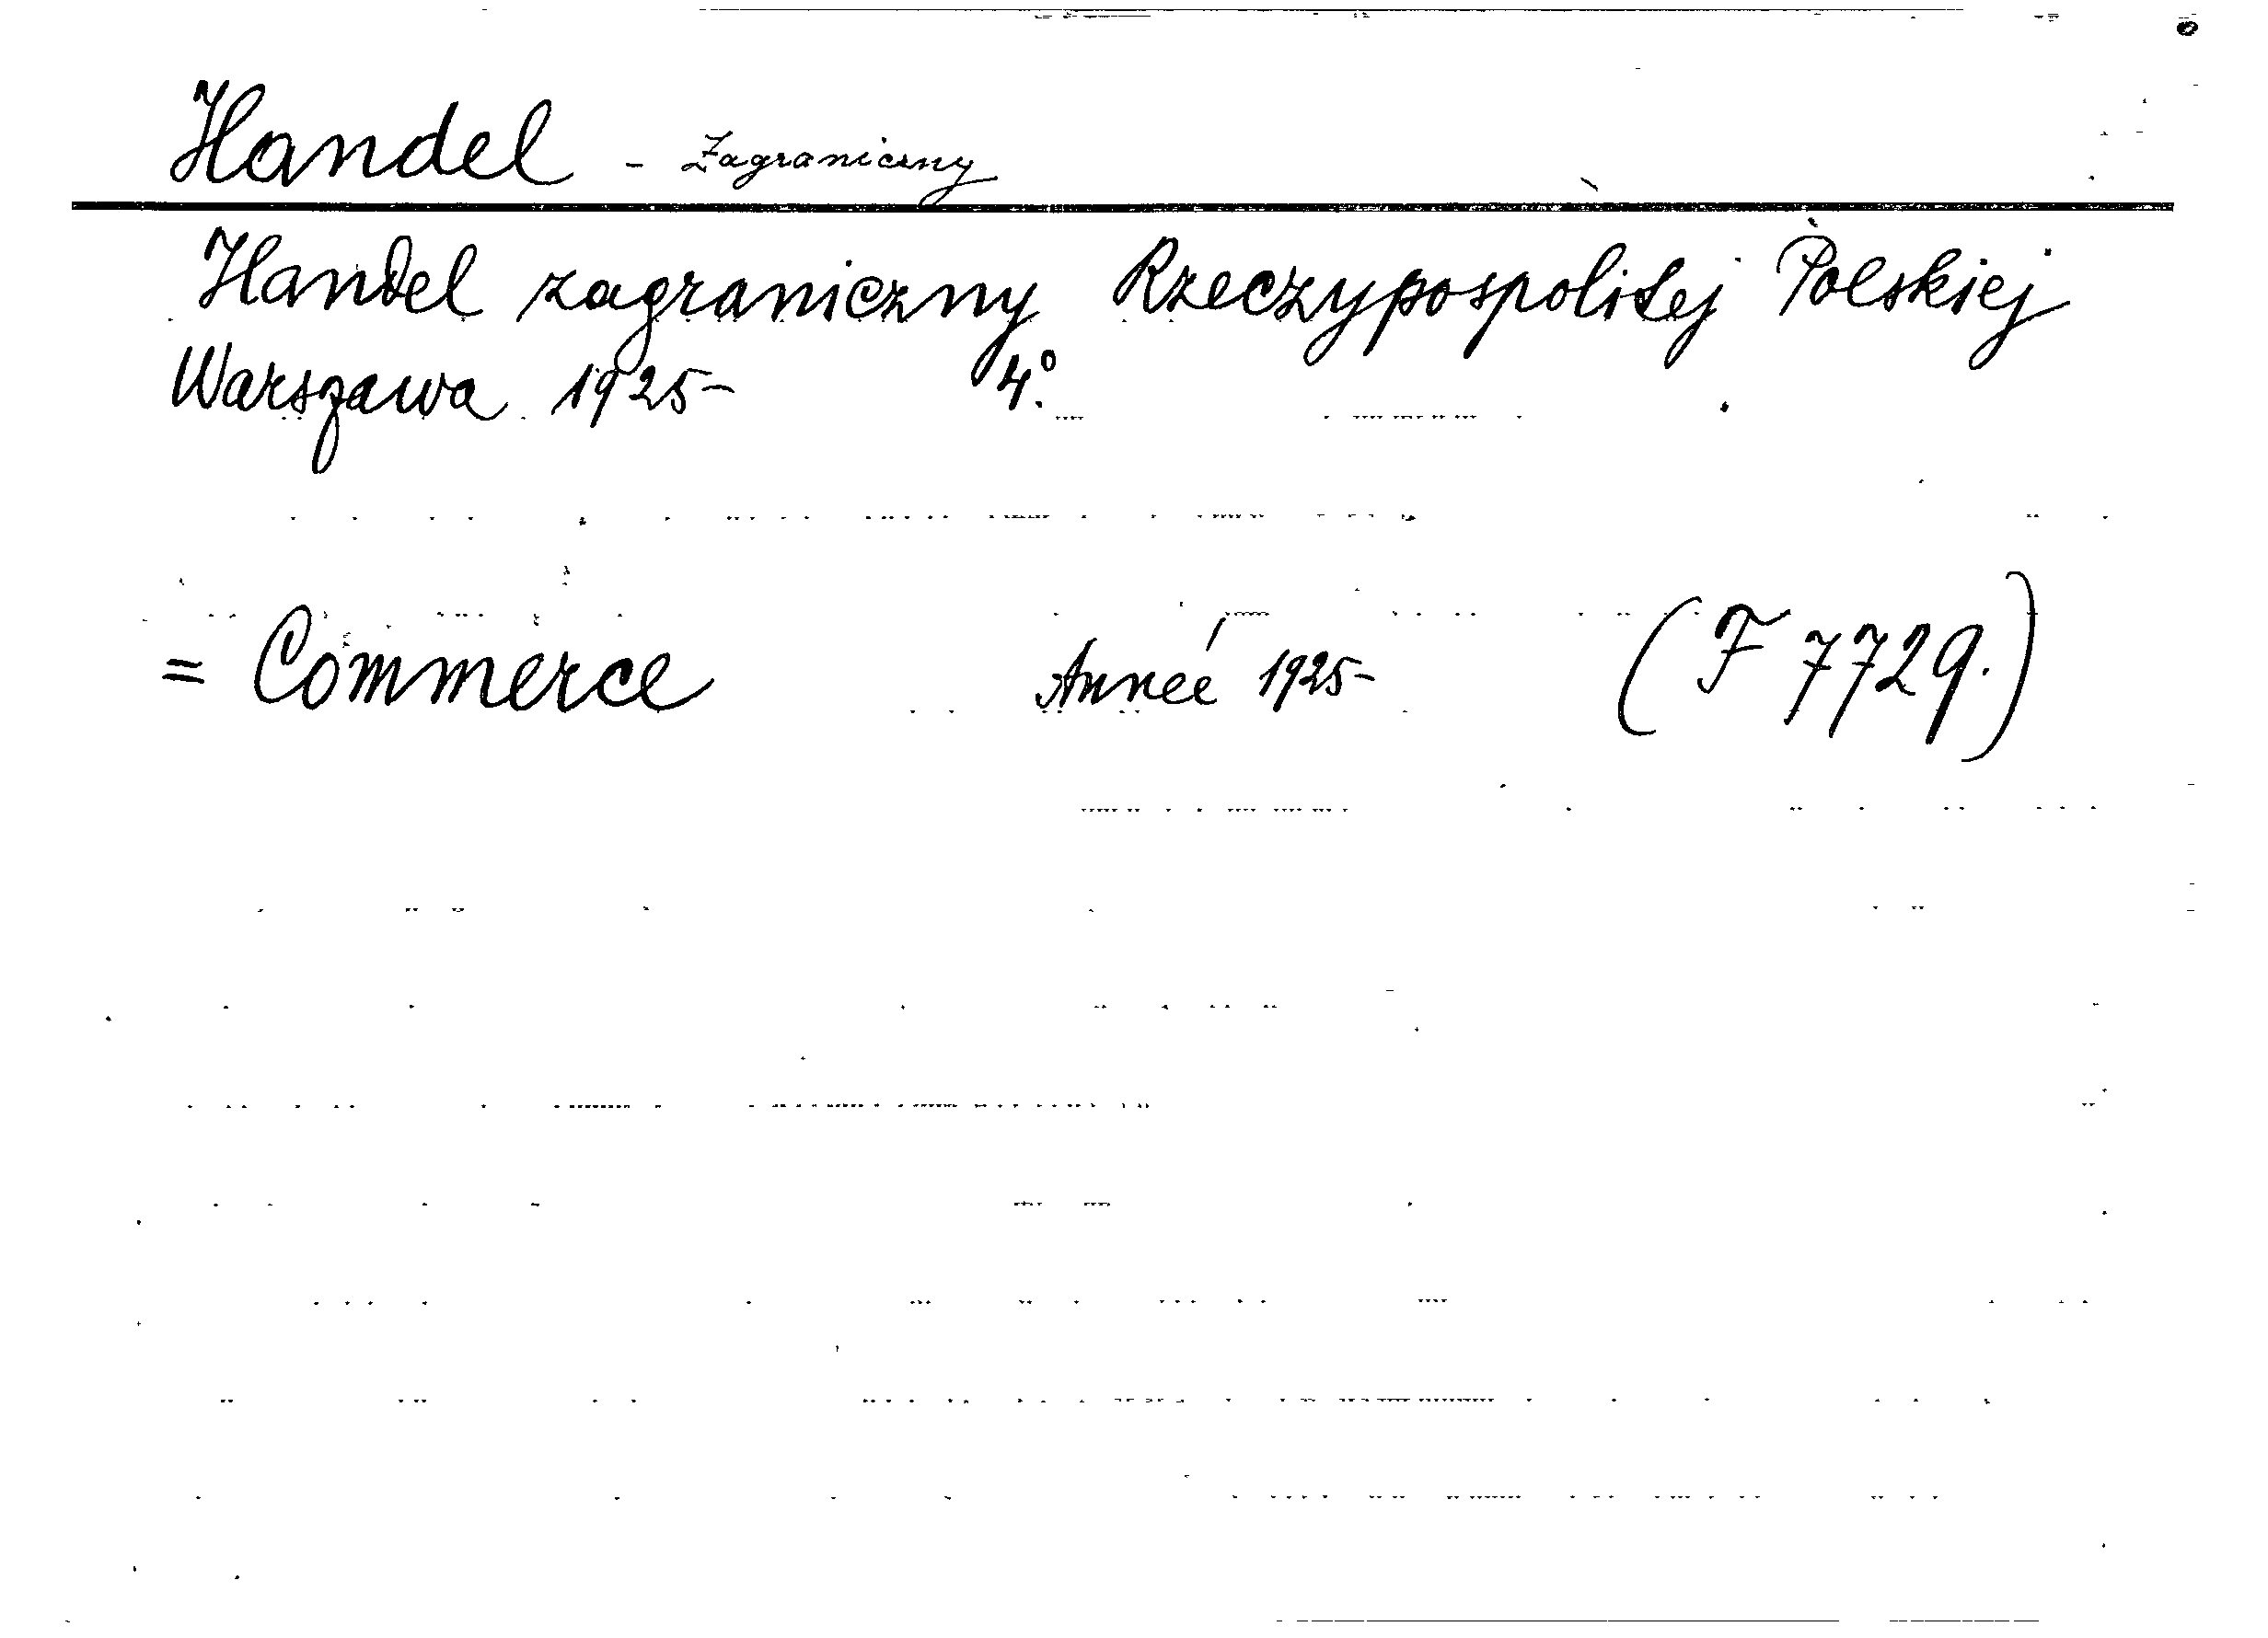 Handel - Zagraniczny
Handel zagraniczny Rzeczypospolitej Polskiej
Warszawa 1925- 4.º
= Commerce Anneé 1925- (F 7729.)